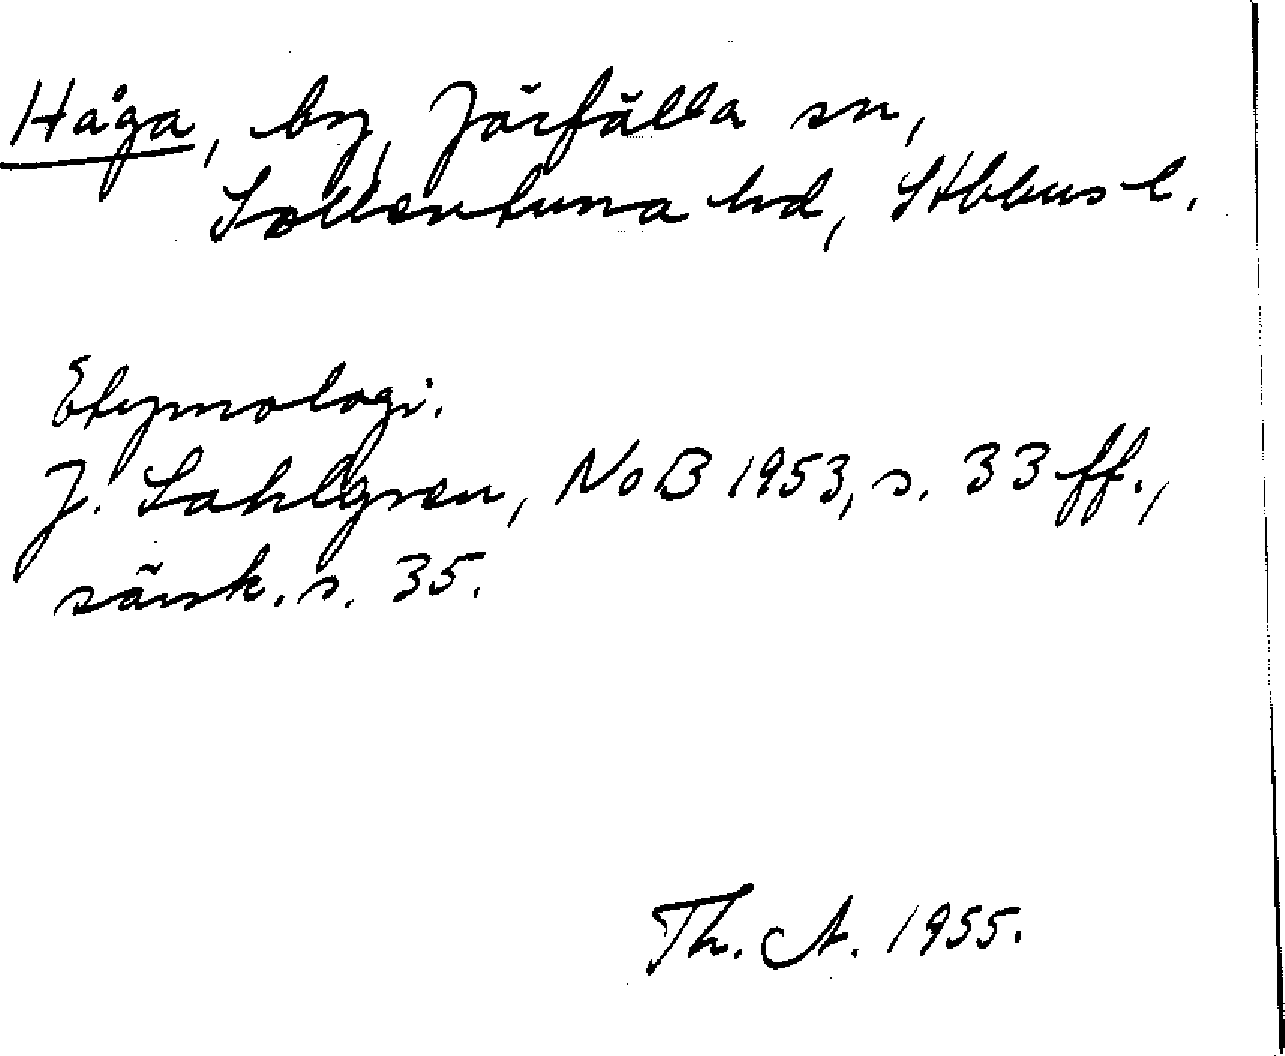 Håga, by, Järfälla sn,
Sollentuna hd, Sthlms l.
Etymologi.
J. Sahlgren, NoB 1953, s. 33 ff.,
särsk. s. 35.
Th. A. 1955.